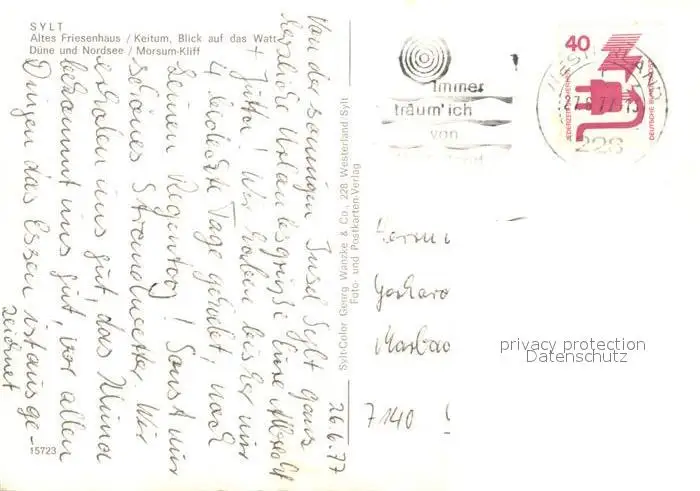 SYLT
Altes Friesenhaus / Keitum, Blick auf das Watt
Düne und Nordsee / Morsum-Kliff
Von der sonnigen Insel Sylt ganz
herzliche Urlaubsgrüße Eure
+ Jutta! Wir haben bisher nur
4 Tage gehabt, noch
keinen Regentag! Sonst nur
schönes Strandwetter. Wir
erholen uns gut, das Klima
bekommt uns gut, vor allen
Dingen das Essen ist ausge-
zeichnet
26.6.77
15723
Sylt-Color Georg Wanzke & Co., 228 Westerland Sylt
Foto- und Postkarten-Verlag
Immer
träum' ich
von
40
JEDERZEIT SICHERHEIT
DEUTSCHE BUNDESPOST
WESTERLAND
27.6.77
228
Marbac
7140
privacy protection
Datenschutz